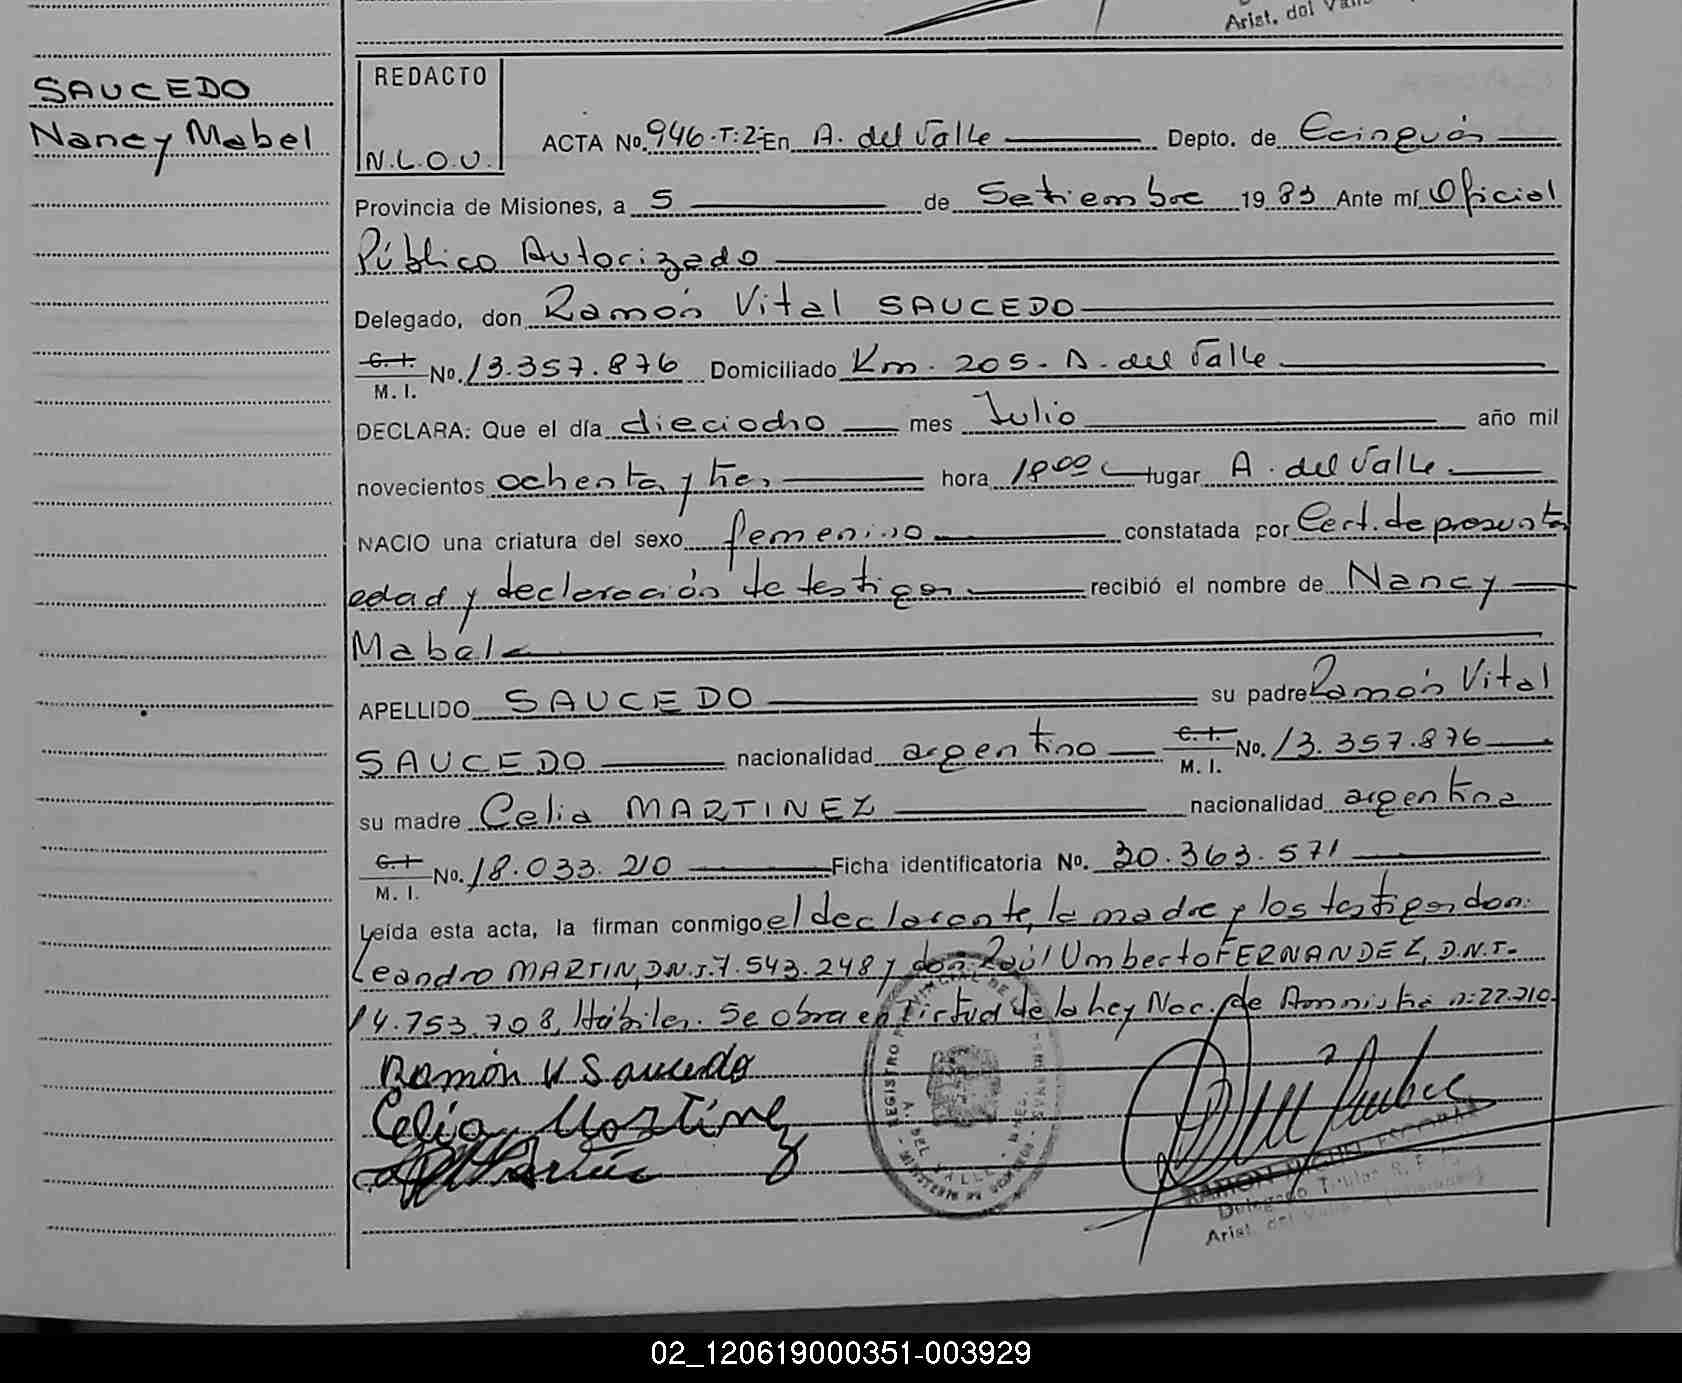 Arist. del Valle
SAUCEDO
Nancy Mabel
REDACTO
N.L.O.V.
ACTA No. 946-T:2- En A. del Valle Depto. de Cainguás
Provincia de Misiones, a 5 de Setiembre 1983 Ante mí Oficial
Público Autorizado
Delegado, don Ramón Vital SAUCEDO
C. I. M. I. No. 13.357.876 Domiciliado Km. 205 - A. del Valle
DECLARA: Que el día dieciocho mes Julio año mil
novecientos ochenta y tres hora 18:00 lugar A. del Valle
NACIO una criatura del sexo femenino constatada por Cert. de presunta
edad y declaración de testigos recibió el nombre de Nancy
Mabel
APELLIDO SAUCEDO su padre Ramón Vital
SAUCEDO nacionalidad argentino C. I. M. I. No. 13.357.876
su madre Celia MARTINEZ nacionalidad argentina
C. I. M. I. No. 18.033.210 Ficha identificatoria No. 30.363.571
Leída esta acta, la firman conmigo el declarante, la madre y los testigos don:
Leandro MARTIN, D.N.I. 7.543.248 y don: Raúl Umberto FERNANDEZ, D.N.I.
14.753.708, Hábiles. Se obra en virtud de la ley Nac. de Amnistía n: 22.210.
Ramón V Saucedo
Celia Martinez
REGISTRO PROVINCIAL DE
MINISTERIO DE GOBIERNO
A. DEL VALLE - MNES.
RAMON MIGUEL ESCOBAR
Delegado Titular
Arist. del Valle
02_120619000351-003929